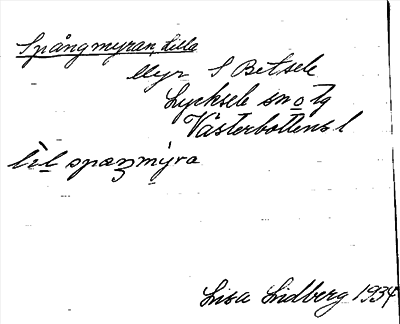 Spångmyran, Lilla
Myr S Betsele
Lycksele sn o tg
Västerbottens l
lìl spaŋmýra
Lisa Lidberg 1934